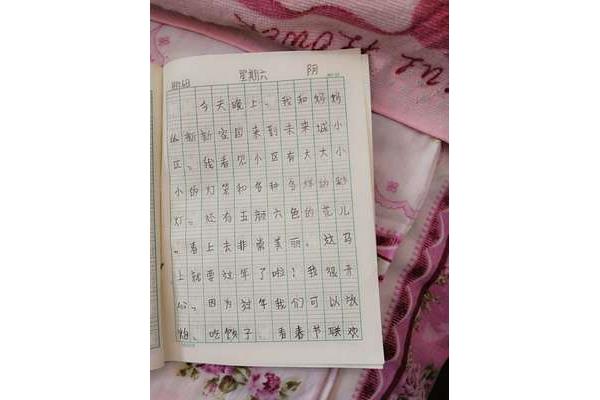 星期六 阴
今天晚上,我和妈妈
从新新家园来到未来城小
区。我看见小区有大大小
小的灯笼和各种各样的彩
灯。还有五颜六色的花儿
,看上去非常美丽。这马
上就要过年了啦!我很开
心。因为过年我们可以放
炮、吃饺子、看春节联欢